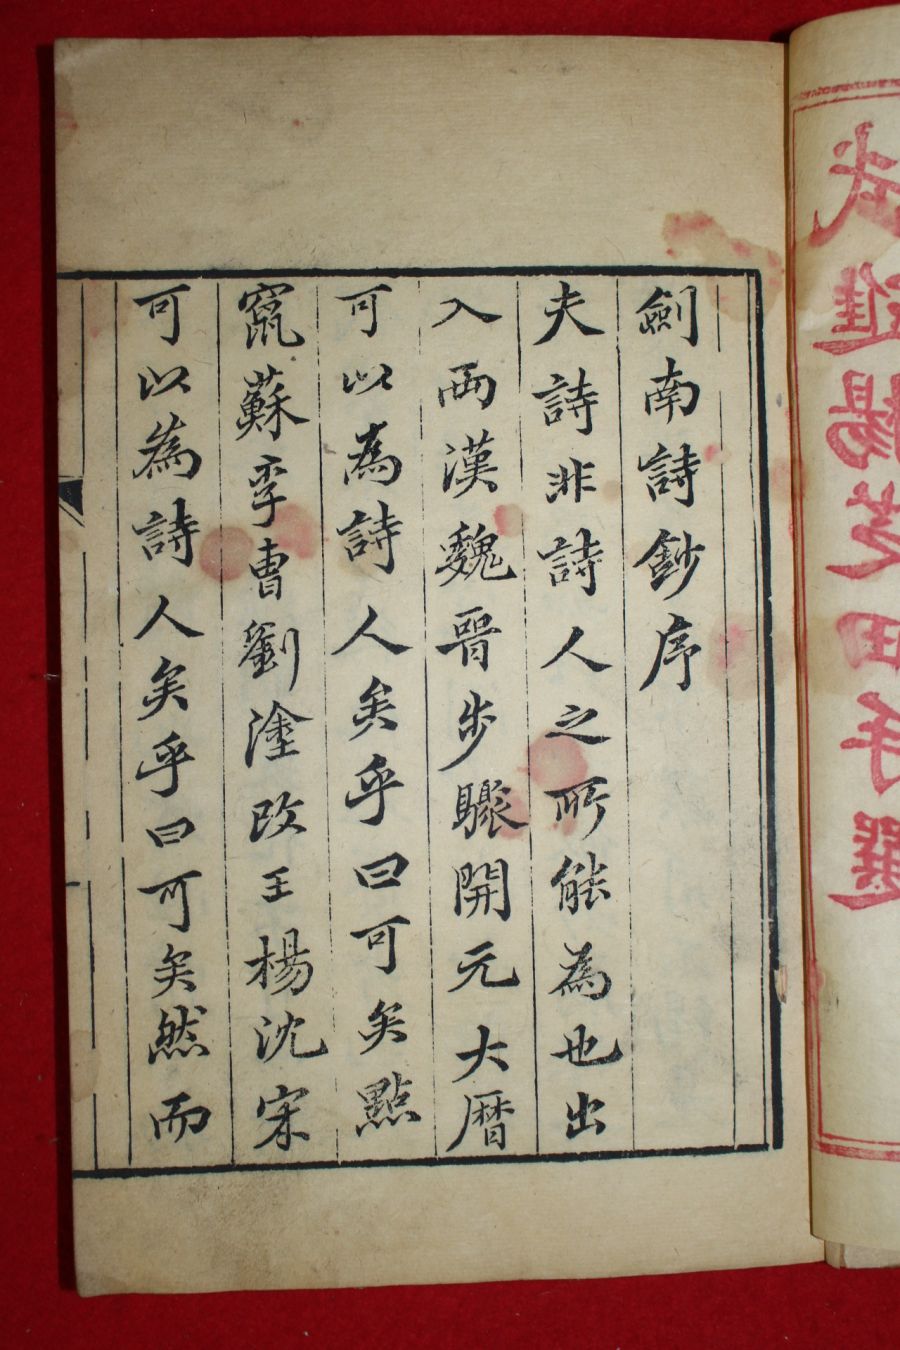 武進楊芝田手選
劍南詩鈔序
夫詩非詩人之所能為也出
入兩漢魏晉步驟開元大曆
可以為詩人矣乎曰可矣點
竄蘇李曹劉塗改王楊沈宋
可以為詩人矣乎曰可矣然而